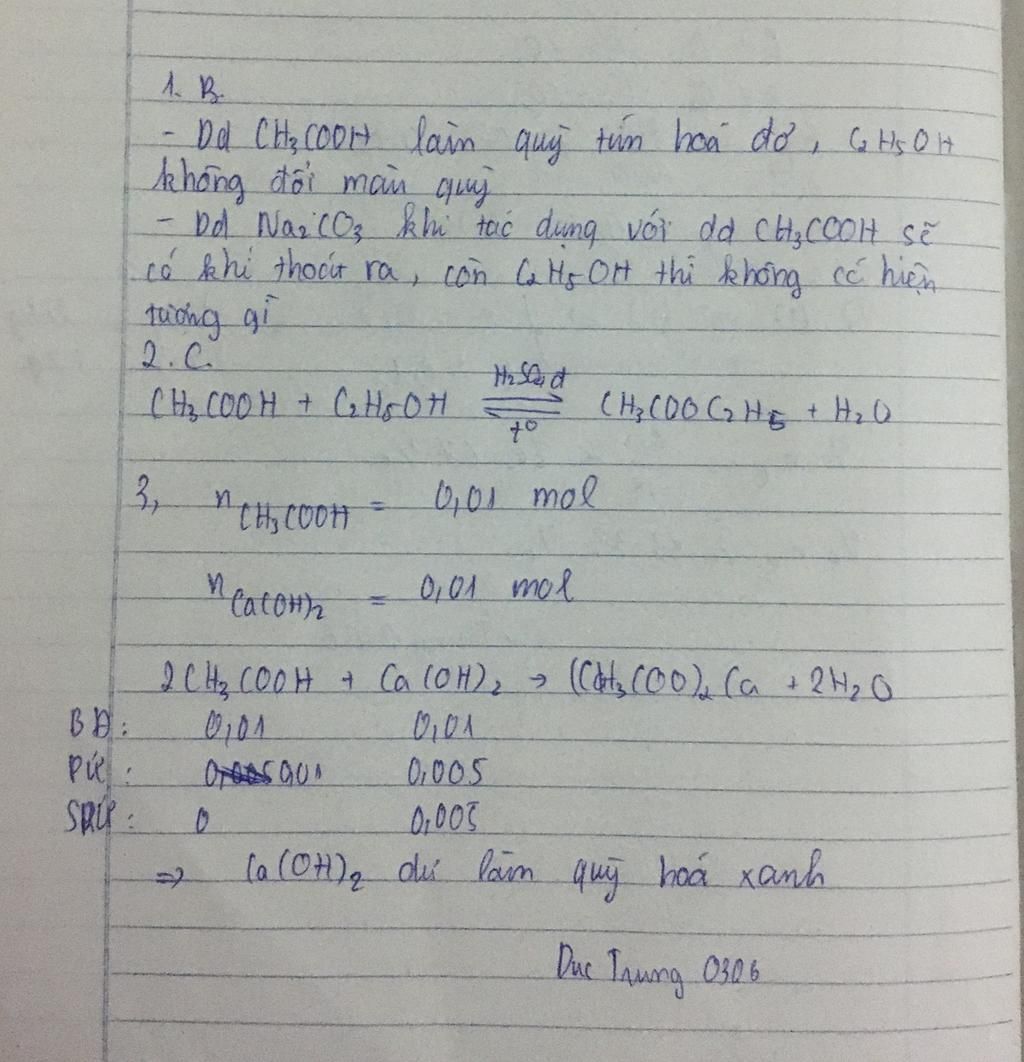 1. B.
- Dd CH₃COOH làm quỳ tím hoá đỏ, C₂H₅OH
không đổi màu quỳ
- Dd Na₂CO₃ khi tác dụng với dd CH₃COOH sẽ
có khí thoát ra, còn C₂H₅OH thì không có hiện
tượng gì
2. C.
CH₃COOH + C₂H₅OH ⇌ (H₂SO₄ đ, t°) CH₃COOC₂H₅ + H₂O
3, n CH₃COOH = 0,01 mol
n Ca(OH)₂ = 0,01 mol
2CH₃COOH + Ca(OH)₂ → (CH₃COO)₂Ca + 2H₂O
BĐ: 0,01 0,01
PƯ: 0,01 0,005
SPƯ: 0 0,005
=> Ca(OH)₂ dư làm quỳ hoá xanh
Duc Trung 0306